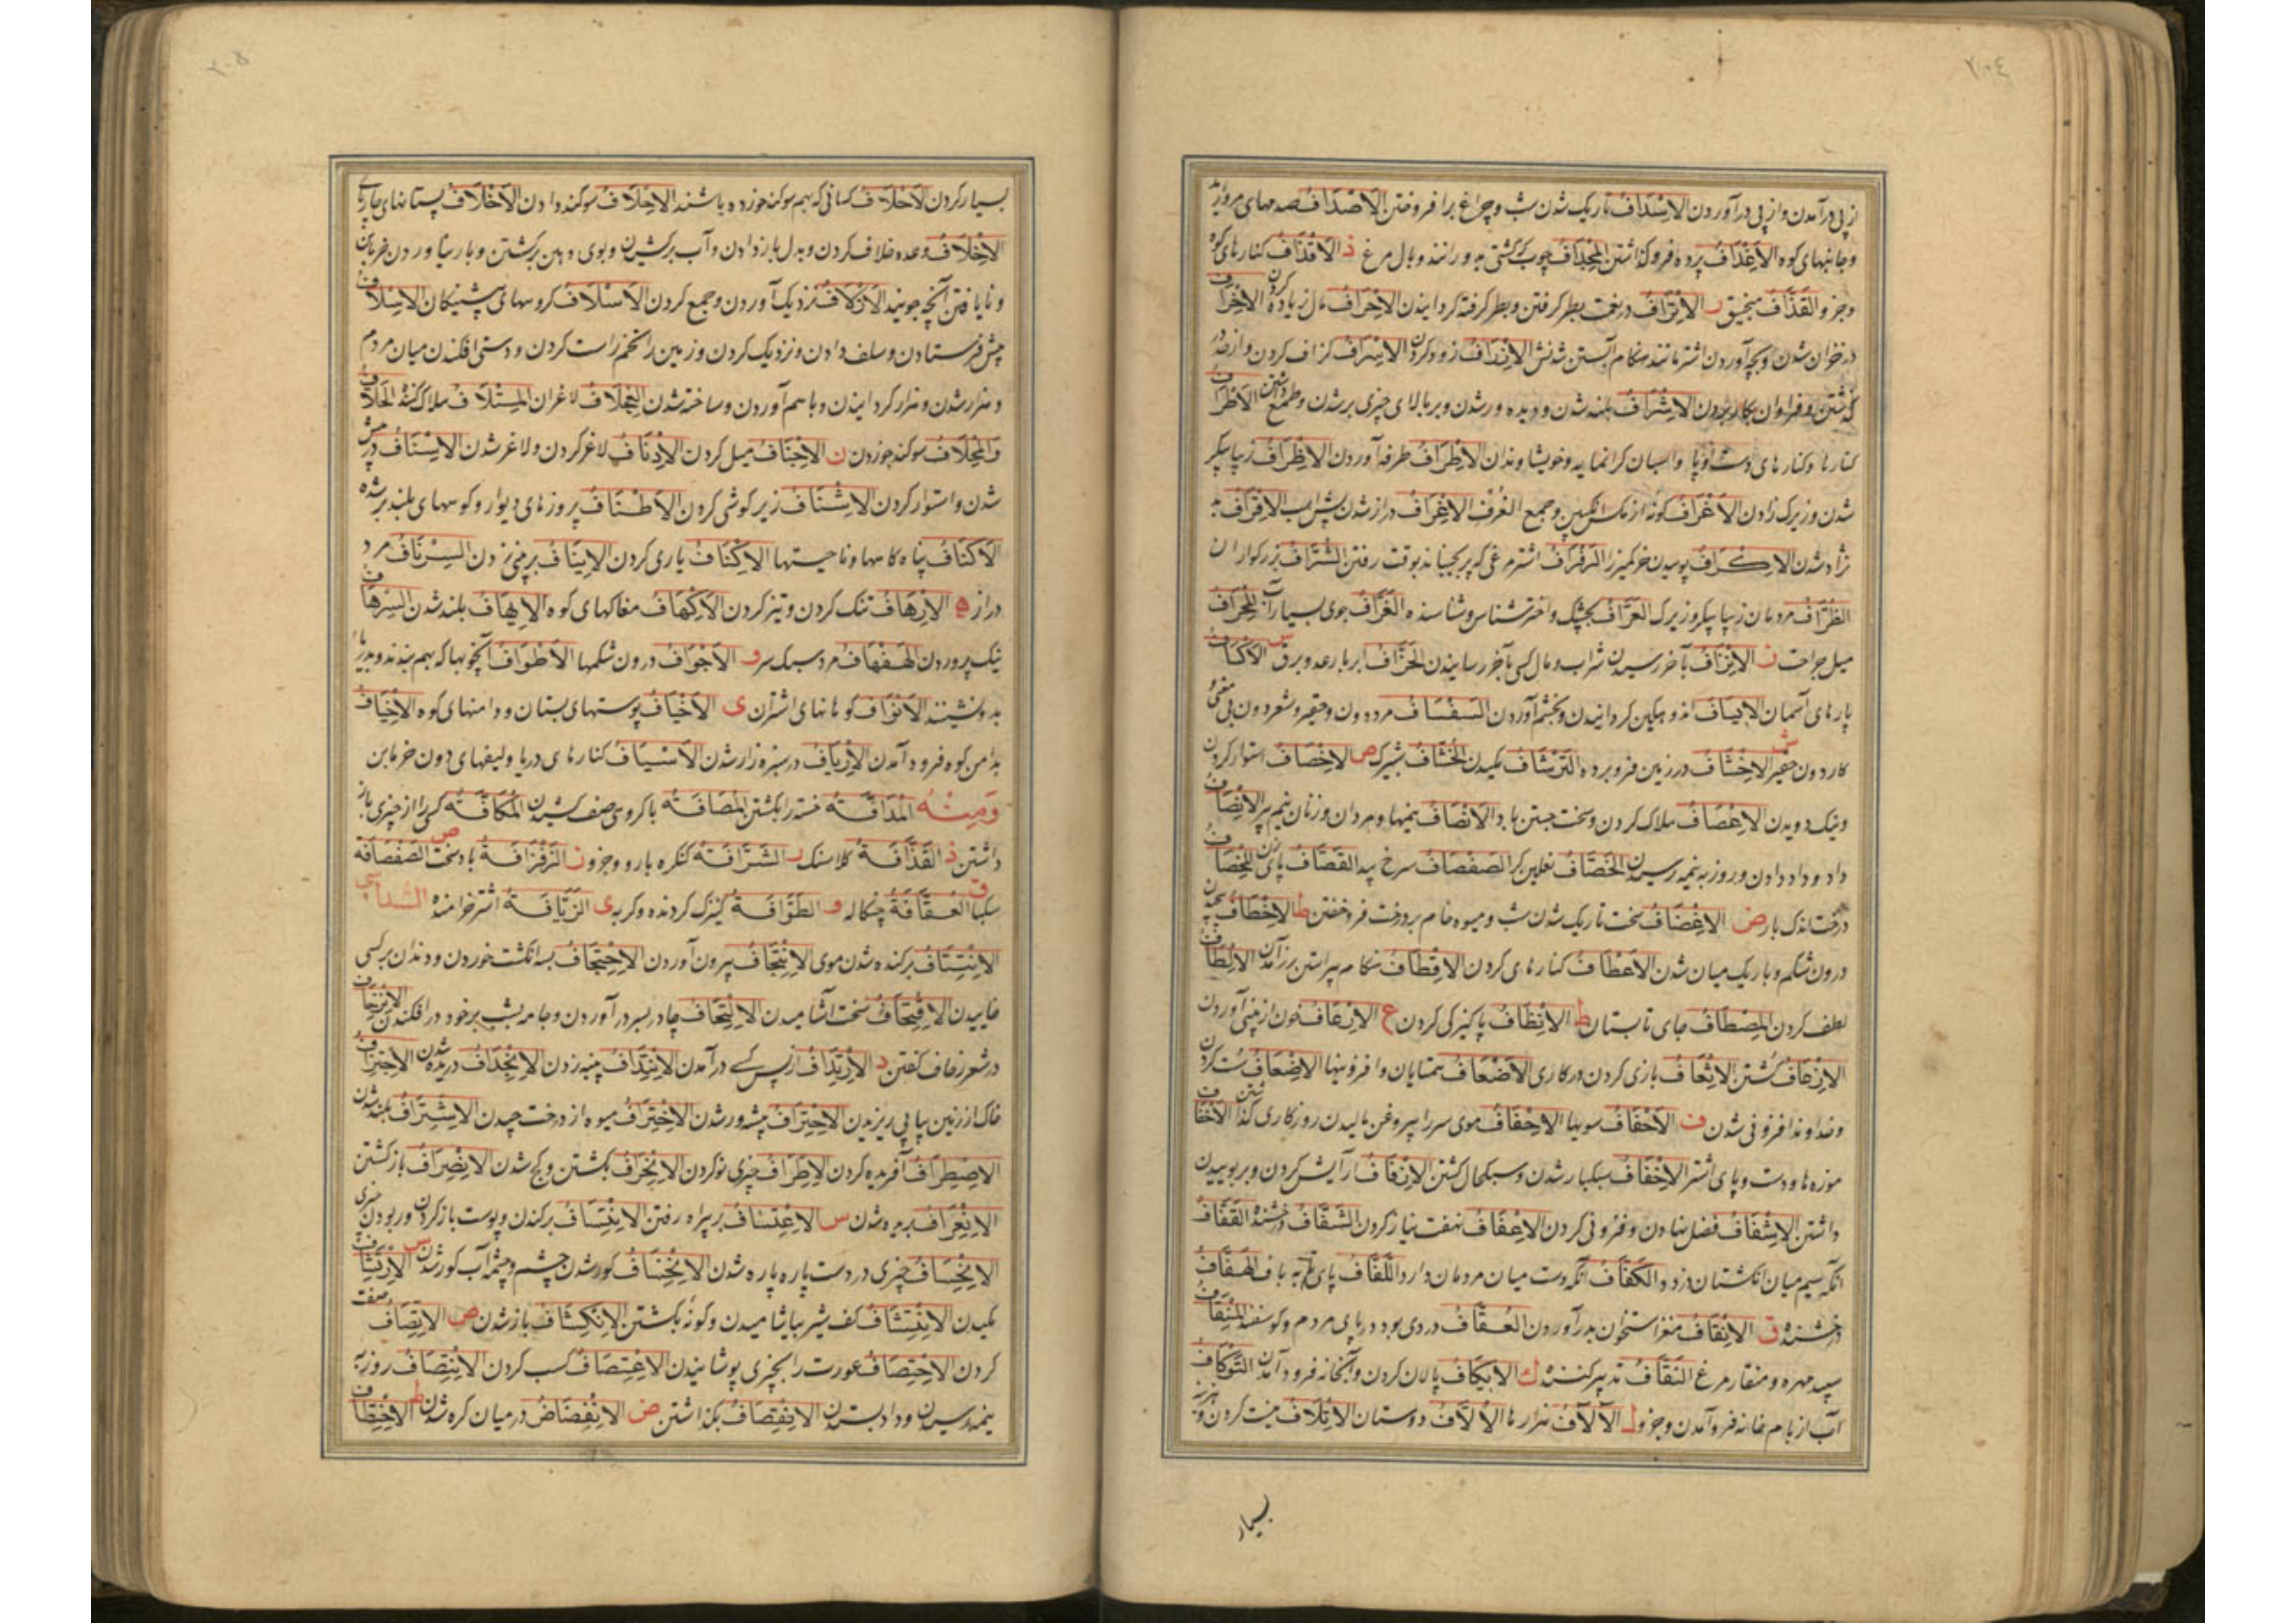 ٢٠٤
از پی درآمدن و از پی درآوردن الاِسْدَافُ تاریک شدن شب و چراغ برافروختن الاَصْدَافُ صدفهای مروارید
و جانبهای کوه الاِغْدَافُ پرده فروگذاشتن المِجْدَافُ چوب که کشتی به و رانند و بال مرغ ذ الاَقْذَافُ کنارهای کوه
وجز و القَذَّافُ منجنیق ر الاِتْرَافُ در نعمت بطر گرفتن و بطر گرفته گردانیدن الاِحْرَافُ مال زیاده کردن الاِخْرَافُ
در خزان شدن و بچه آوردن اشتر مانند هنگام آبستن شدنش الاِزْرَافُ زود کردن الاِسْرَافُ گزاف کردن و از حد
گذشتن و فراوان بکار بردن الاِشْرَافُ بلند شدن و دیده ور شدن و بر بالای چیزی بر شدن و طمع داشتن الاَطْرَافُ
کنارها و کنارهای دست و پا و اسبان گرانمایه و خویشاوندان الاِطْرَافُ طرفه آوردن الاِظْرَافُ زیبا پیکر
شدن و زیرک زادن الاَعْرَافُ گونه از مگس انگبین و جمع العُرْف الاِغْرَافُ دراز شدن الاِقْرَافُ بد
نژاد شدن الاِکْرَافُ بوییدن خر کمیز را الزَفْرَافُ اشتر مرغی که پر بجنباند بوقت رفتن الشُرَّافُ بزرگواران
الظُرَّافُ مردمان زیبا پیکر و زیرک العَرَّافُ بجشک و اختر شناس و شناسنده الغَرَّافُ جوی بسیار آب المِحْرَافُ
میل جراحت ز الاِنْزَافُ بآخر رسیدن شراب و مال کسی بآخر رسانیدن العَزَّافُ ابر با رعد و برق س الاَکْسَافُ
پارهای آسمان الاِیسَافُ اندوهگین گردانیدن و بخشم آوردن السَفْسَافُ مرد دون و حقیر و شعر دون بی معنی و
کار دون حقیر ش الاِخْشَافُ در زمین فرو برده التَرْشَافُ مکیدن الخَشَّافُ شبپرک ص الاِحْصَافُ استوار کردن
و نیک دویدن الاِعْصَافُ هلاک کردن و سخت جستن باد الاَنْصَافُ نیمها و مردان و زنان نیم پیر الاِنْصَافُ
داد و داد دادن و روز به نیمه رسیدن الخَصَّافُ نعلین گر الصَفْصَافُ سرخ بید القَصَّافُ پای زن المِخْصَافُ
درخت اندک بار ض الاِغْضَافُ سخت تاریک شدن شب و میوه خام بر درخت فروختن ط الاِخْطَافُ
درون شکم و باریک میان شدن الاَعْطَافُ کنارهای کردن الاِقْطَافُ هنگام پیراستن رز آمدن الاِلْطَافُ
لطف کردن المِصْطَافُ جای تابستان ظ الاِنْظَافُ پاکیزگی کردن ع الاِرْعَافُ خون از بینی آوردن
الاِزْعَافُ کشتن الاِشْعَافُ بازی کردن در کاری الاَضْعَافُ همتایان و افزونیها الاِضْعَافُ سست کردن
و خداوند افزونی شدن ف الاَحْفَافُ سویها الاِحْفَافُ موی سر را بی روغن مالیدن روزگاری گذاشتن الاَخْفَافُ
موزه ها و دست و پای اشتر الاِخْفَافُ سبکبار شدن و سبکحال گشتن الاِزْفَافُ آرایش کردن و بر بوییدن
داشتن الاِشْفَافُ فضل نهادن و فزونی کردن الاِعْفَافُ نهفت نیاز کردن الشَفَّافُ درخشنده القَفَّافُ
آنکه سیم میان انگشتان دزدد الکَفَّافُ آنکه دست میان مردمان دارد اللَفَّافُ پای باف الهَفَّافُ
درخشنده ق الاِنْقَافُ مغز استخوان بدر آوردن العُقَّافُ دردی بود در پای مردم و گوسفند المِنْقَافُ
سپید مهره و منقار مرغ النَقَّافُ تدبیر کننده ك الاِیکَافُ پالان کردن و آبخانه فرود آمدن التَوْکَافُ
آب از بام خانه فرو آمدن و جز و ل الآلَافُ هزارها الأُلَّافُ دوستان الاِتْلَافُ نیست کردن و
بسیار
٢٠٥
بسیار کردن الاَحْلَافُ کسانی که بهم سوگند خورده باشند الاِحْلَافُ سوگند دادن الاَخْلَافُ پستانهای چارپای
الاِخْلَافُ وعده خلاف کردن و بدل باز دادن و آب برکشیدن و بوی دهن برگشتن و بار نیاوردن خرمابن
و نایافتن آنچه جویند الاِزْلَافُ نزدیک آوردن و جمع کردن الاَسْلَافُ گروههای پیشینگان الاِسْلَافُ
پیش فرستادن و سلف دادن و نزدیک کردن و زمین را تخم راست کردن و دستی افکندن میان مردم
و هزار شدن و هزار گردانیدن و با هم آوردن و ساخته شدن العِجْلَافُ لاغران المِتْلَافُ هلاک کننده الحَلَّافُ
وَالمِحْلَافُ سوگند خوردن ن الاِجْنَافُ میل کردن الاِدْنَافُ لاغر کردن و لاغر شدن الاِسْنَافُ در پیش
شدن و استوار کردن الاِشْنَافُ زیر گوشی کردن الاَطْنَافُ پروزهای دیوار و کوههای بلند بر شده
الاَکْنَافُ پناه گاهها و ناحیتها الاِکْنَافُ یاری کردن الاِینَافُ بر بینی زدن السِرْنَافُ مرد
دراز ه الاِرْهَافُ تنک کردن و تیز کردن الاَکْهَافُ مغاکهای کوه الاِیهَافُ بلند شدن السِرْهَافُ
نیک پروردن الهَفْهَافُ مرد سبک سر و الاَجْوَافُ درون شکمها الاَطْوَافُ آنچوبها که بهم بندند و بدریا
بدو نشینند الاَنْوَافُ کوهانهای اشتران ی الاَخْیَافُ پوستهای پستان و دامنهای کوه الاِخْیَافُ
بدامن کوه فرود آمدن الاِرْیَافُ در سبزه زار شدن الاَسْیَافُ کنارهای دریا و لیفهای دون خرمابن
وَمِنْهُ المُدَافَّةُ خسته را بکشتن المُصَافَّةُ با گروهی صف کشیدن المُکَافَّةُ کسی را از چیزی باز
داشتن ذ القَذَّافَةُ کلاسنگ ر الشَرَّافَةُ کنگره بارو و جز و ز الزَفْزَافَةُ باد سخت ص الصَفْصَافَةُ
سکبا ق العُقَّافَةُ چنگاله و الطَوَّافَةُ کنیزک گردنده و گربه ی الزَیَّافَةُ اشتر خرامنده السُّدَاسِی
الاِنْتِتَافُ برکنده شدن موی الاِنْتِجَافُ بیرون آوردن الاِحْتِجَافُ بسه انگشت خوردن و دندان بر کسی
خاییدن الاِقْتِحَافُ سخت آشامیدن الاِلْتِحَافُ چادر بسر در آوردن و جامه بشب بر خود در افکندن الاِنْزِحَافُ
در شعر زحاف گفتن د الاِرْتِدَافُ از پس کسی در آمدن الاِنْتِدَافُ پنبه زدن الاِنْجِدَافُ دریده شدن الاِجْتِرَافُ
خاک از زمین بیا بی ریزیدن الاِحْتِرَافُ پیشه ور شدن الاِخْتِرَافُ میوه از درخت چیدن الاِشْتِرَافُ بلند شدن
الاِصْطِرَافُ آفریده کردن الاِطِّرَافُ چیزی نو کردن الاِنْحِرَافُ بگشتن و کج شدن الاِنْصِرَافُ بازگشتن
الاِنْغِرَافُ بریده شدن س الاِعْتِسَافُ بر بیراه رفتن الاِنْتِسَافُ برکندن و پوست باز کردن و ربودن چیزی
الاِنْخِسَافُ چیزی در دست پاره پاره شدن الاِنْخِسَافُ کور شدن چشم و چشمه آب کور شدن ش الاِرْتِشَافُ
مکیدن الاِنْتِشَافُ کف شیر بیاشامیدن و گونه بگشتن الاِنْکِشَافُ باز شدن ص الاِتِّصَافُ صفت
کردن الاِخْتِصَافُ عورت را بچیزی پوشانیدن الاِعْتِصَافُ کسب کردن الاِنْتِصَافُ روز به
نیمه رسیدن و داد بستدن الاِنْقِصَافُ بگذاشتن ض الاِنْغِضَافُ در میان گره شدن ط الاِخْتِطَافُ